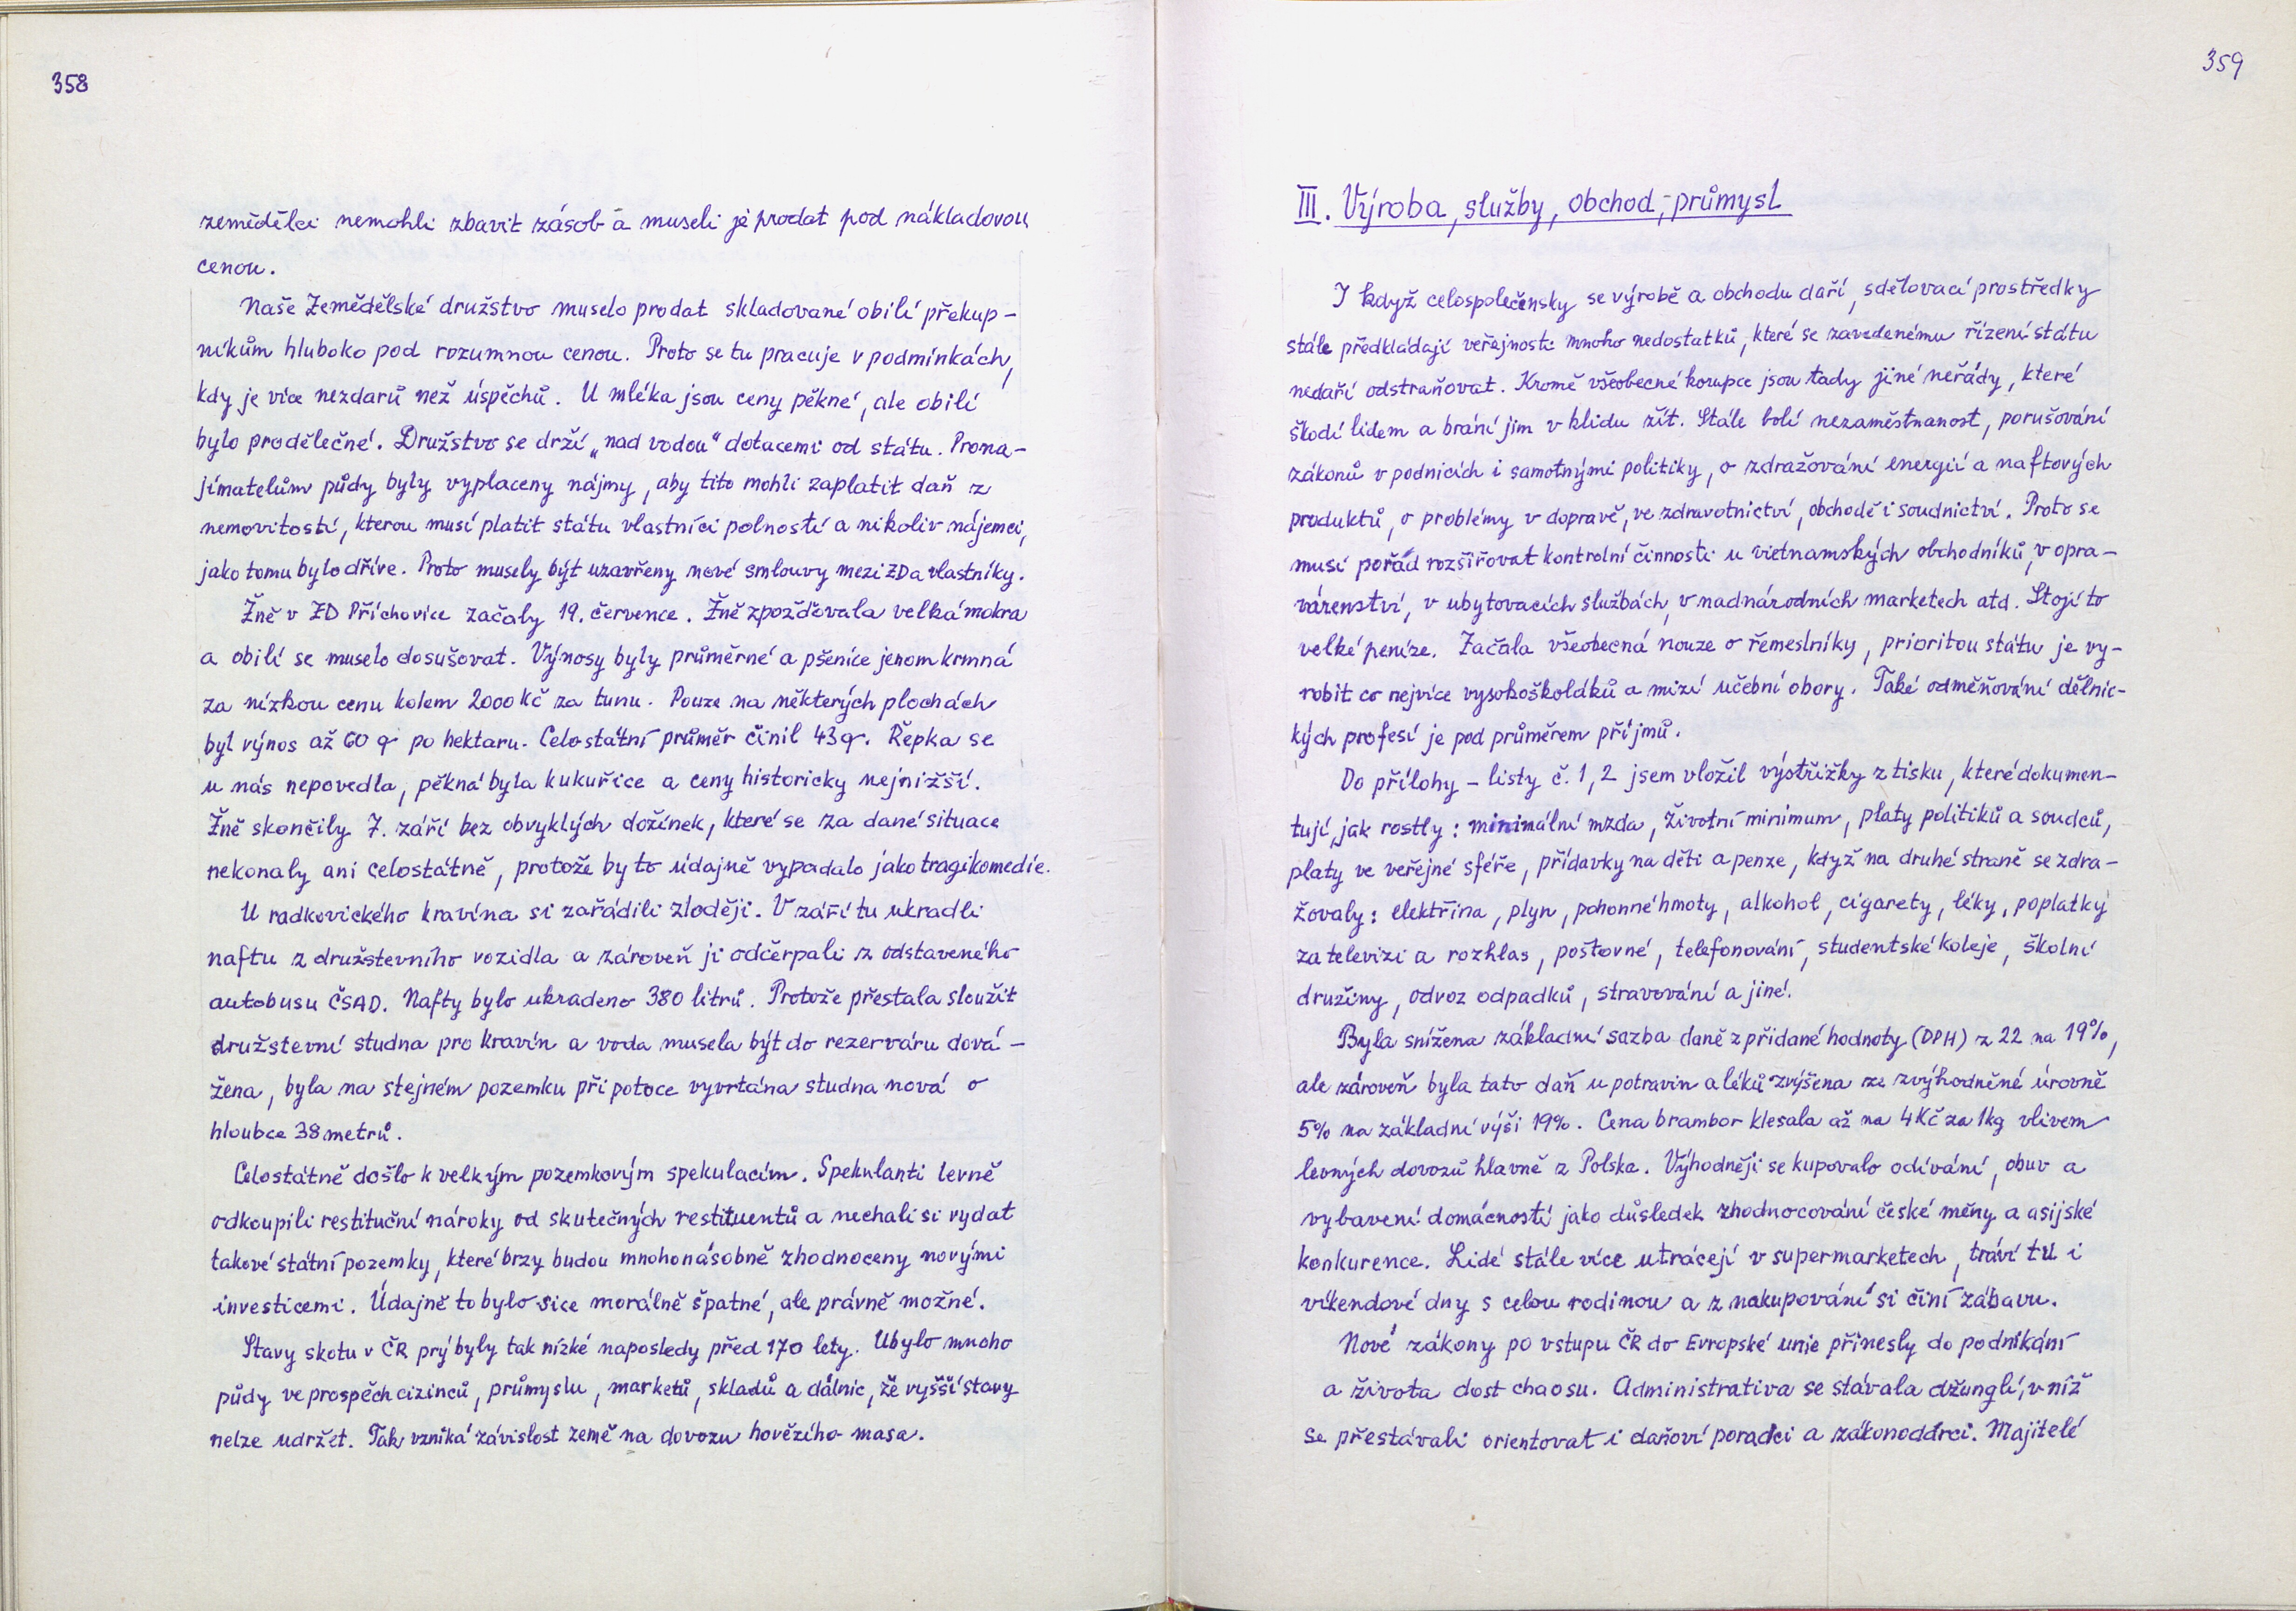 358
zemědělci nemohli zbavit zásob a museli je prodat pod nákladovou
cenou.
Naše Zemědělské družstvo muselo prodat skladované obilí překup-
níkům hluboko pod rozumnou cenou. Proto se tu pracuje v podmínkách,
kdy je více nezdarů než úspěchů. U mléka jsou ceny pěkné, ale obilí
bylo prodělečné. Družstvo se drží „nad vodou“ dotacemi od státu. Prona-
jímatelům půdy byly vyplaceny nájmy, aby tito mohli zaplatit daň z
nemovitostí, kterou musí platit státu vlastníci polností a nikoliv nájemci,
jako tomu bylo dříve. Proto musely být uzavřeny nové smlouvy mezi ZD a vlastníky.
Žně v ZD Příchovice začaly 19. července. Žně zpožďovala velká mokra
a obilí se muselo dosušovat. Výnosy byly průměrné a pšenice jenom krmná
za nízkou cenu kolem 2000 Kč za tunu. Pouze na některých plochách
byl výnos až 60 q po hektaru. Celostátní průměr činil 43 q. Řepka se
u nás nepovedla, pěkná byla kukuřice a ceny historicky nejnižší.
Žně skončily 7. září bez obvyklých dožínek, které se za dané situace
nekonaly ani celostátně, protože by to údajně vypadalo jako tragikomedie.
U radkovického kravína si zařádili zloději. V září tu ukradli
naftu z družstevního vozidla a zároveň ji odčerpali z odstaveného
autobusu ČSAD. Nafty bylo ukradeno 380 litrů. Protože přestala sloužit
družstevní studna pro kravín a voda musela být do rezerváru dová-
žena, byla na stejném pozemku při potoce vyvrtána studna nová o
hloubce 38 metrů.
Celostátně došlo k velkým pozemkovým spekulacím. Spekulanti levně
odkoupili restituční nároky od skutečných restituentů a nechali si vydat
takové státní pozemky, které brzy budou mnohonásobně zhodnoceny novými
investicemi. Údajně to bylo sice morálně špatné, ale právně možné.
Stavy skotu v ČR prý byly tak nízké naposledy před 170 lety. Ubylo mnoho
půdy ve prospěch cizinců, průmyslu, marketů, skladů a dálnic, že vyšší stavy
nelze udržet. Tak vzniká závislost země na dovozu hovězího masa.
359
III. Výroba, služby, obchod, průmysl
I když celospolečensky se výrobě a obchodu daří, sdělovací prostředky
stále předkládají veřejnosti mnoho nedostatků, které se zavedenému řízení státu
nedaří odstraňovat. Kromě všeobecné korupce jsou tady jiné neřády, které
škodí lidem a brání jim v klidu žít. Stále bolí nezaměstnanost, porušování
zákonů v podnicích i samotnými politiky, o zdražování energií a naftových
produktů, o problémy v dopravě, ve zdravotnictví, obchodě i soudnictví. Proto se
musí pořád rozšiřovat kontrolní činnosti u vietnamských obchodníků, v opra-
várenství, v ubytovacích službách, v nadnárodních marketech atd. Stojí to
velké peníze. Začala všeobecná nouze o řemeslníky, prioritou státu je vy-
robit co nejvíce vysokoškoláků a mizí učební obory. Také odměňování dělnic-
kých profesí je pod průměrem příjmů.
Do přílohy – listy č. 1, 2 jsem vložil výstřižky z tisku, které dokumen-
tují, jak rostly: minimální mzda, životní minimum, platy politiků a soudců,
platy ve veřejné sféře, přídavky na děti a penze, když na druhé straně se zdra-
žovaly: elektřina, plyn, pohonné hmoty, alkohol, cigarety, léky, poplatky
za televizi a rozhlas, poštovné, telefonování, studentské koleje, školní
družiny, odvoz odpadků, stravování a jiné.
Byla snížena základní sazba daně z přidané hodnoty (DPH) z 22 na 19%,
ale zároveň byla tato daň u potravin a léků zvýšena ze zvýhodněné úrovně
5% na základní výši 19%. Cena brambor klesala až na 4 Kč za 1kg vlivem
levných dovozů hlavně z Polska. Výhodněji se kupovalo odívání, obuv a
vybavení domácností jako důsledek zhodnocování české měny a asijské
konkurence. Lidé stále více utrácejí v supermarketech, tráví tu i
víkendové dny s celou rodinou a z nakupování si činí zábavu.
Nové zákony po vstupu ČR do Evropské unie přinesly do podnikání
a života dost chaosu. Administrativa se stávala džunglí, v níž
se přestávali orientovat i daňoví poradci a zákonodárci. Majitelé